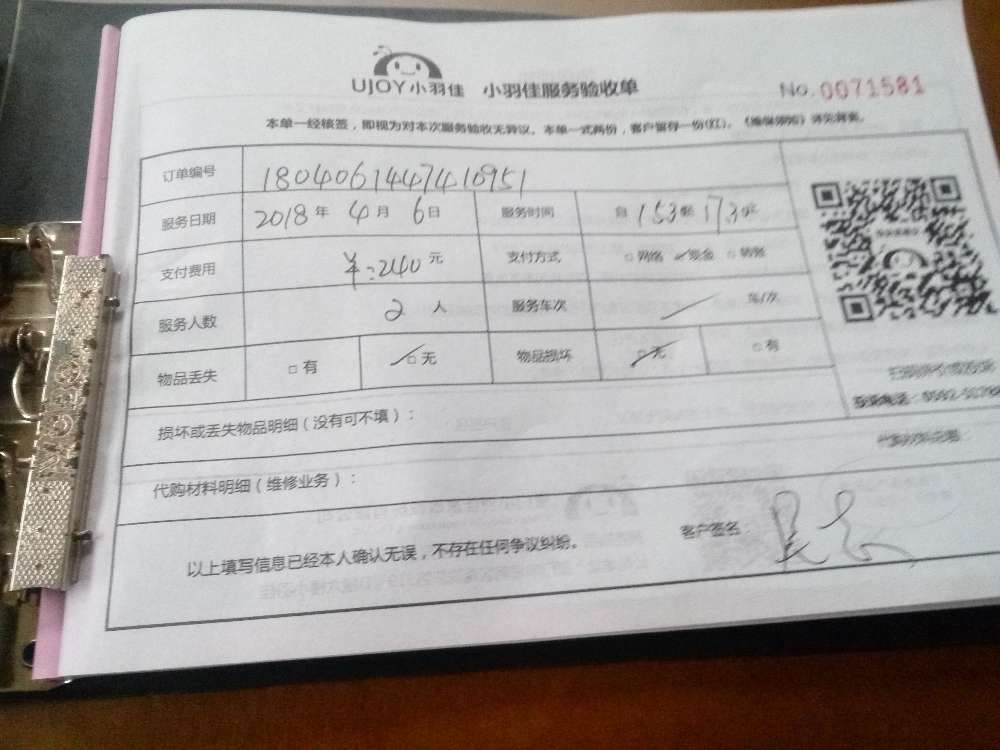 UJOY小羽佳 小羽佳服务验收单 No.0071581
本单一经核签，即视为对本次服务验收无异议。本单一式两份，客户留存一份(红)。
订单编号 1804061447410951
服务日期 2018年 4月 6日 服务时间 自
支付费用 ¥:240元 支付方式 □网络 □现金 □转账
服务人数 2人 服务车次 车/次
物品丢失 □有 □无 物品损坏 □无 □有
损坏或丢失物品明细（没有可不填）：
代购材料明细（维修业务）：
以上填写信息已经本人确认无误，不存在任何争议纠纷。 客户签名：